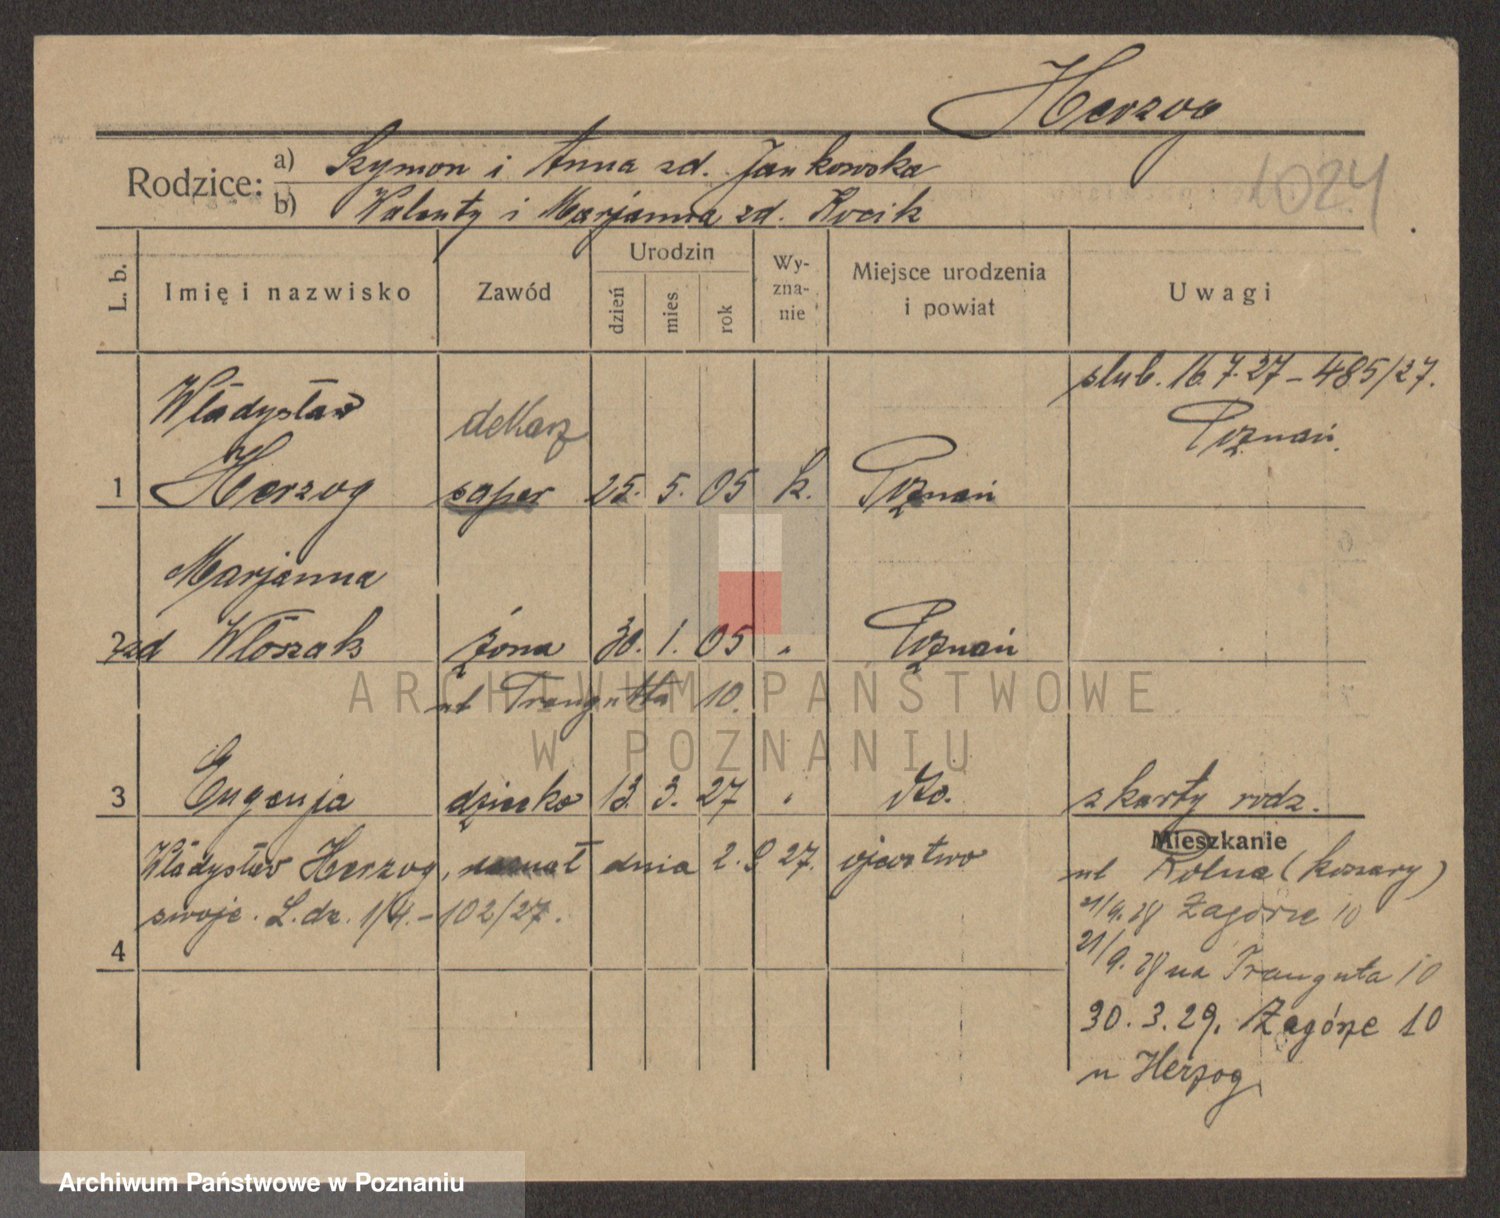 Herzog
1024
Rodzice:
a) Szymon i Anna zd. Jankowska
b) Walenty i Marjanna zd. Kocik
L. b.
Imię i nazwisko
Zawód
Urodzin
dzień
mies
rok
Wy-
zna-
nie
Miejsce urodzenia
i powiat
Uwagi
ślub. 16.7.27 – 485/27.
Poznań.
Władysław dekarz
1 Herzog saper 25. 5. 05 k. Poznań
Marjanna
2 zd Włoszak żona 30. 1. 05 " Poznań
ul Traugutta 10.
ARCHIWUM PAŃSTWOWE
W POZNANIU
3 Eugenja dziecko 13. 3. 27 " dto. z karty rodz.
Władysław Herzog, uznał dnia 2. 9 27. ojcostwo
swoje. L. dz. 1/4. – 102/27.
4
Mieszkanie
ul Rolna (koszary)
21/9.28 Zagórze 10
21/9.28 na Trauguta 10
30.3.29. Zagórze 10
u Herzog
Archiwum Państwowe w Poznaniu